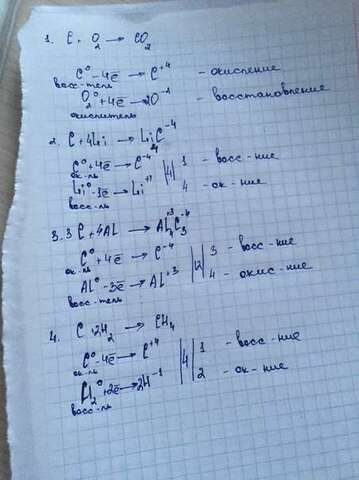 1. C + O₂ → CO₂
C⁰ - 4ē → C⁺⁴ - окисление
восс-тель
O₂⁰ + 4ē → 2O⁻² - восстановление
окислитель
2. C + 4Li → Li₄C⁻⁴
C⁰ + 4ē → C⁻⁴ |4| 1 - восс-ние
ок-ль
Li⁰ - 1ē → Li⁺¹ 4 - ок-ние
восс-ль
3. 3C + 4AL → AL₄⁺³C₃⁻⁴
C⁰ + 4ē → C⁻⁴ |12| 3 - восс-ние
ок-ль
AL⁰ - 3ē → AL⁺³ 4 - окис-ние
восс-тель
4. C + 2H₂ → CH₄
C⁰ - 4ē → C⁺⁴ |4| 1 - восс-ние
ок-ль
H₂⁰ + 2ē → 2H⁻¹ 2 - ок-ние
восс-ль